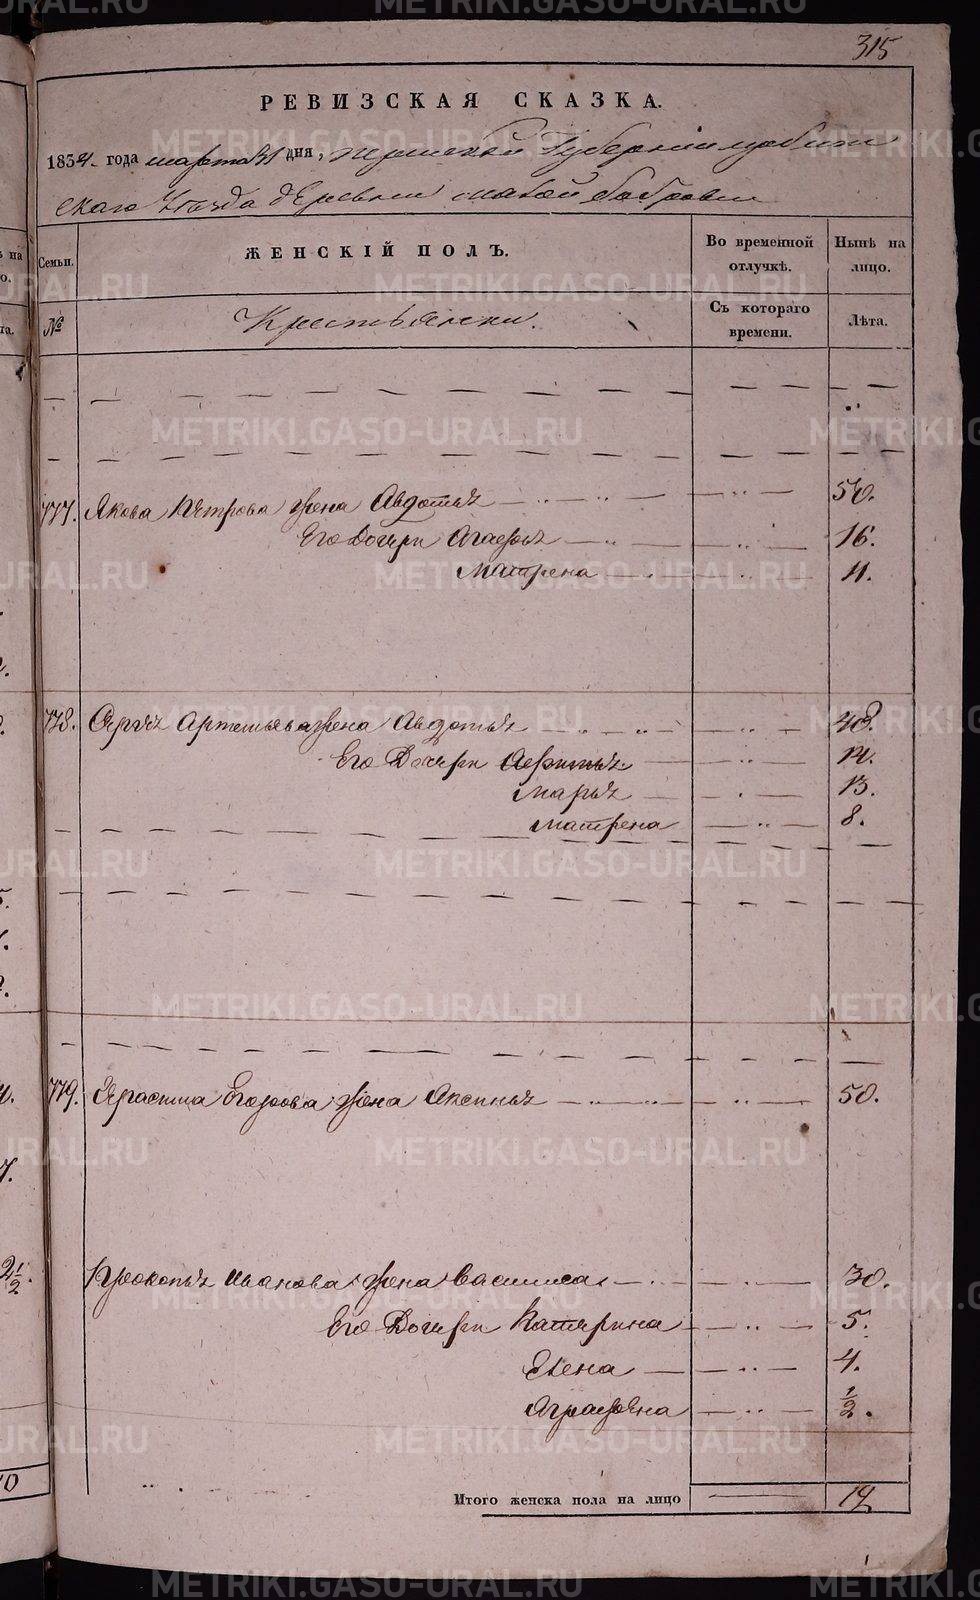 315
РЕВИЗСКАЯ СКАЗКА.
1834. года марта 31 дня, пермской Губернии
скаго Уезда деревни малой бобровки
Семьи. ЖЕНСКІЙ ПОЛЪ. Во временной отлучкѣ. Нынѣ на лицо.
№ Крестьянски. Съ котораго времени. Лѣта.
777. Якова Петрова жена Авдотья 50.
Его Дочери Агафья 16.
Матрена 11.
778. Сергея Артемьева жена Авдотья 48.
Его Дочери 14.
Марья 13.
Матрена 8.
779. Ераста Егорова жена Аксинья 50.
Прокопья Иванова жена Василиса 30.
Его Дочери Катерина 5.
Елена 4.
Аграфена 1/2.
Итого женска пола на лицо 12
METRIKI.GASO-URAL.RU